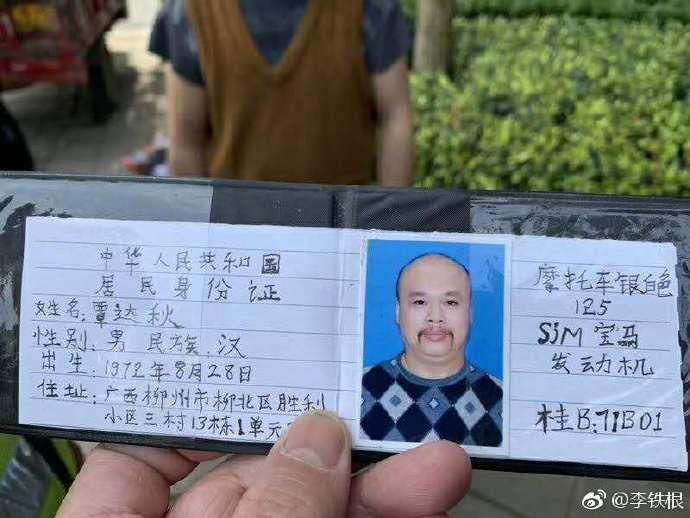 中华人民共和国
居民身份证
姓名:覃达秋
性别:男 民族:汉
出生:1972年8月28日
住址:广西柳州市柳北区胜利
小区三村13栋1单元
摩托车银白色
125
SJM宝马
发动机
桂B:71B01
@李铁根